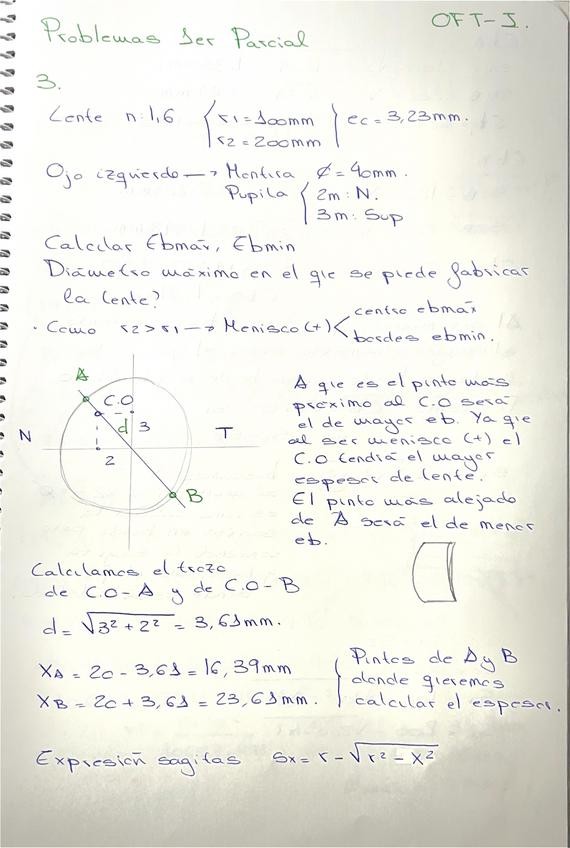 OFT-I.
Problemas 1er Parcial
3.
Lente n: 1,6 { r1 = 100mm } ec = 3,23mm.
r2 = 200mm
Ojo izquierdo → Montura ∅ = 40mm.
Pupila { 2m: N.
3m: Sup
Calcular Ebmax, Ebmin
Diámetro máximo en el que se puede fabricar
la lente?
· Como r2 > r1 → Menisco (+) < centro ebmax
bordes ebmin.
A
C.O
d 3
N T
2
B
A que es el punto más
próximo al C.O será
el de mayor eb. Ya que
al ser menisco (+) el
C.O tendrá el mayor
espesor de lente.
El punto más alejado
de A será el de menor
eb.
Calculamos el trozo
de C.O-A y de C.O-B
d = √3² + 2² = 3,61mm.
XA = 20 - 3,61 = 16,39mm
XB = 20 + 3,61 = 23,61mm.
} Puntos de A y B
donde queremos
calcular el espesor.
Expresión sagitas Sx = r - √r² - x²